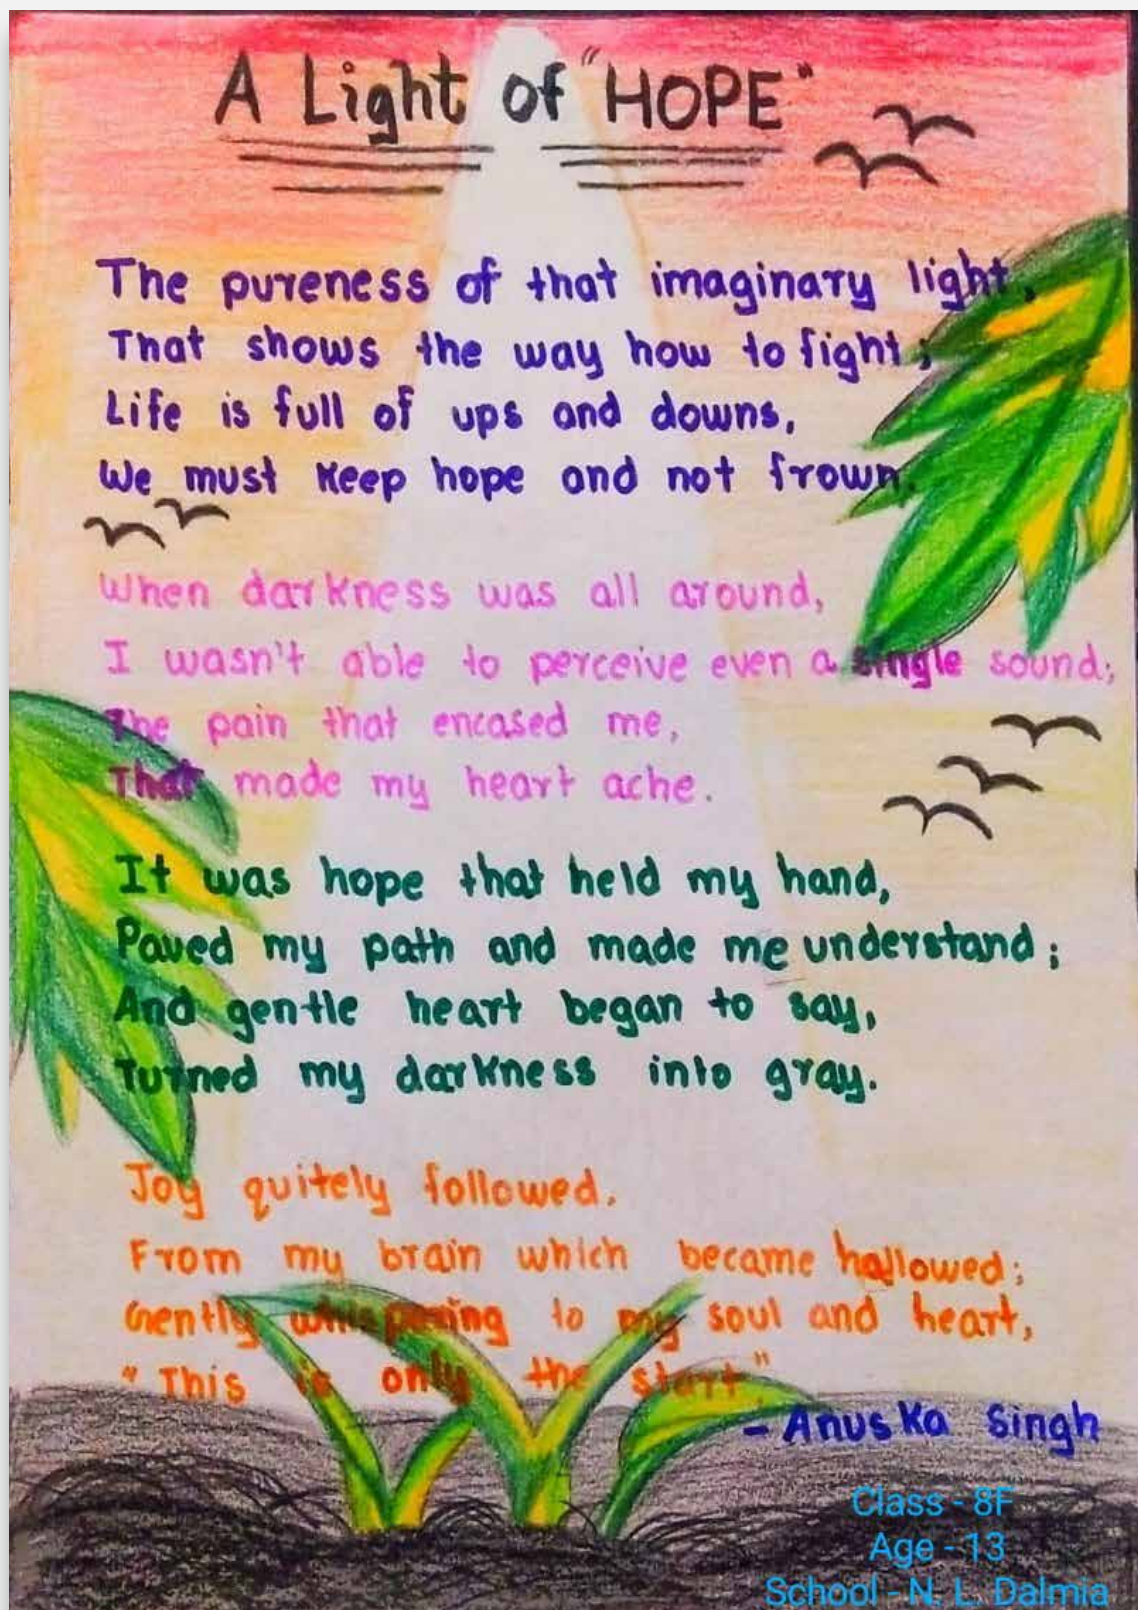 A Light of "HOPE"
The pureness of that imaginary light,
That shows the way how to fight;
Life is full of ups and downs,
We must keep hope and not frown.
When darkness was all around,
I wasn't able to perceive even a single sound;
The pain that encased me,
That made my heart ache.
It was hope that held my hand,
Paved my path and made me understand;
And gentle heart began to say,
Turned my darkness into gray.
Joy quitely followed.
From my brain which became hallowed;
Gently whispering to my soul and heart,
"This is only the start."
- Anuska Singh
Class - 8F
Age - 13
School - N. L. Dalmia